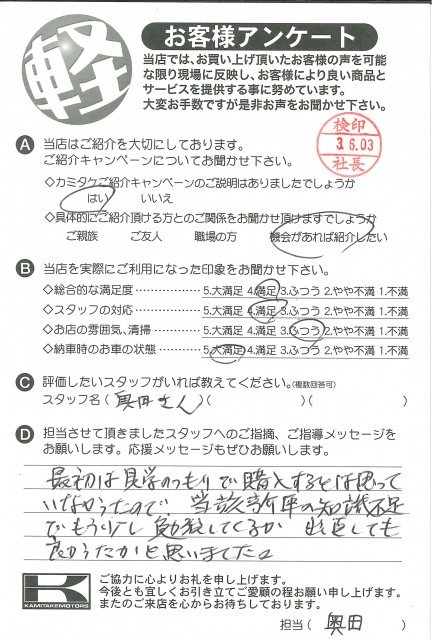 軽
お客様アンケート
当店では、お買い上げ頂いたお客様の声を可能
な限り現場に反映し、お客様により良い商品と
サービスを提供する事に努めています。
大変お手数ですが是非お声をお聞かせ下さい。
検印
3.6.03
社長
A 当店はご紹介を大切にしております。
ご紹介キャンペーンについてお聞かせ下さい。
◇カミタケご紹介キャンペーンのご説明はありましたでしょうか
はい いいえ
◇具体的にご紹介頂ける方とのご関係をお聞かせ頂けますでしょうか
ご親族 ご友人 職場の方 機会があれば紹介したい
B 当店を実際にご利用になった印象をお聞かせ下さい。
◇総合的な満足度 5.大満足 4.満足 3.ふつう 2.やや不満 1.不満
◇スタッフの対応 5.大満足 4.満足 3.ふつう 2.やや不満 1.不満
◇お店の雰囲気、清掃 5.大満足 4.満足 3.ふつう 2.やや不満 1.不満
◇納車時のお車の状態 5.大満足 4.満足 3.ふつう 2.やや不満 1.不満
C 評価したいスタッフがいれば教えてください。(複数回答可)
スタッフ名 ( 奥田さん )( )( )
D 担当させて頂きましたスタッフへのご指摘、ご指導メッセージを
お願いします。応援メッセージもぜひお願いします。
最初は見学のつもりで購入するとは思って
いなかったので、当該新車の知識不足
でもう少し勉強してくるか 出直しても
良かったかと思いました。
K
KAMITAKEMOTORS
ご協力に心よりお礼を申し上げます。
今後とも宜しくお引き立てご愛顧の程お願い申し上げます。
またのご来店を心からお待ちしております。
担当 ( 奥田 )